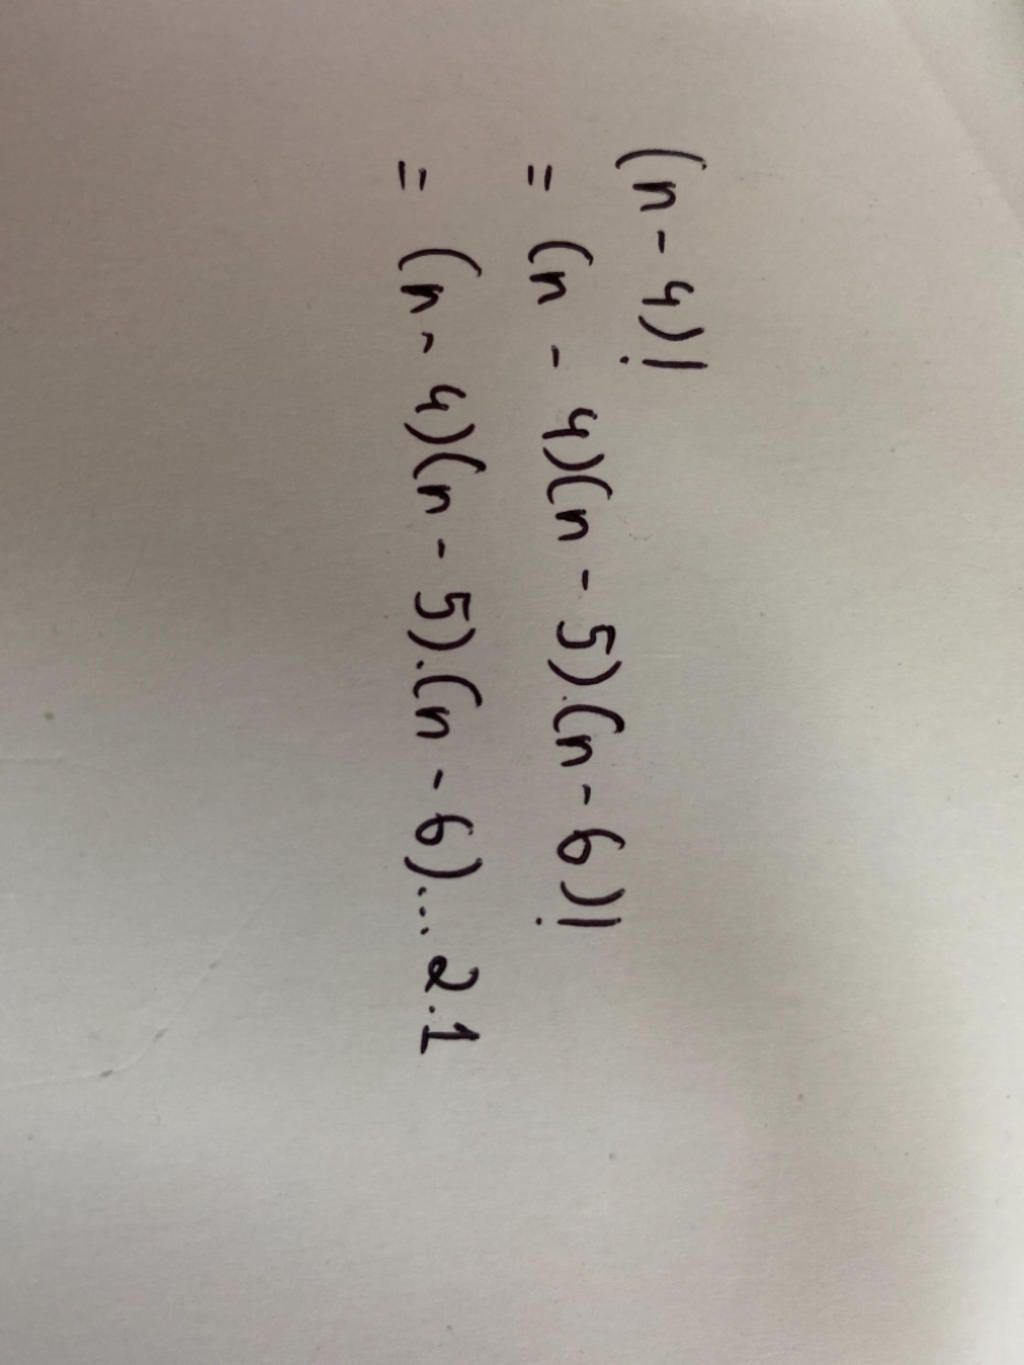 (n - 4)!
= (n - 4)(n - 5).(n - 6)!
= (n - 4)(n - 5).(n - 6)... 2.1